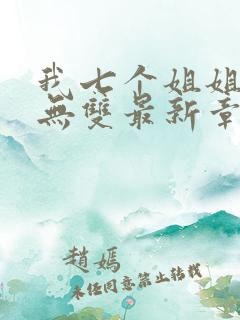 我七个姐姐
無雙最新章
趙嫣
未经同意禁止转载